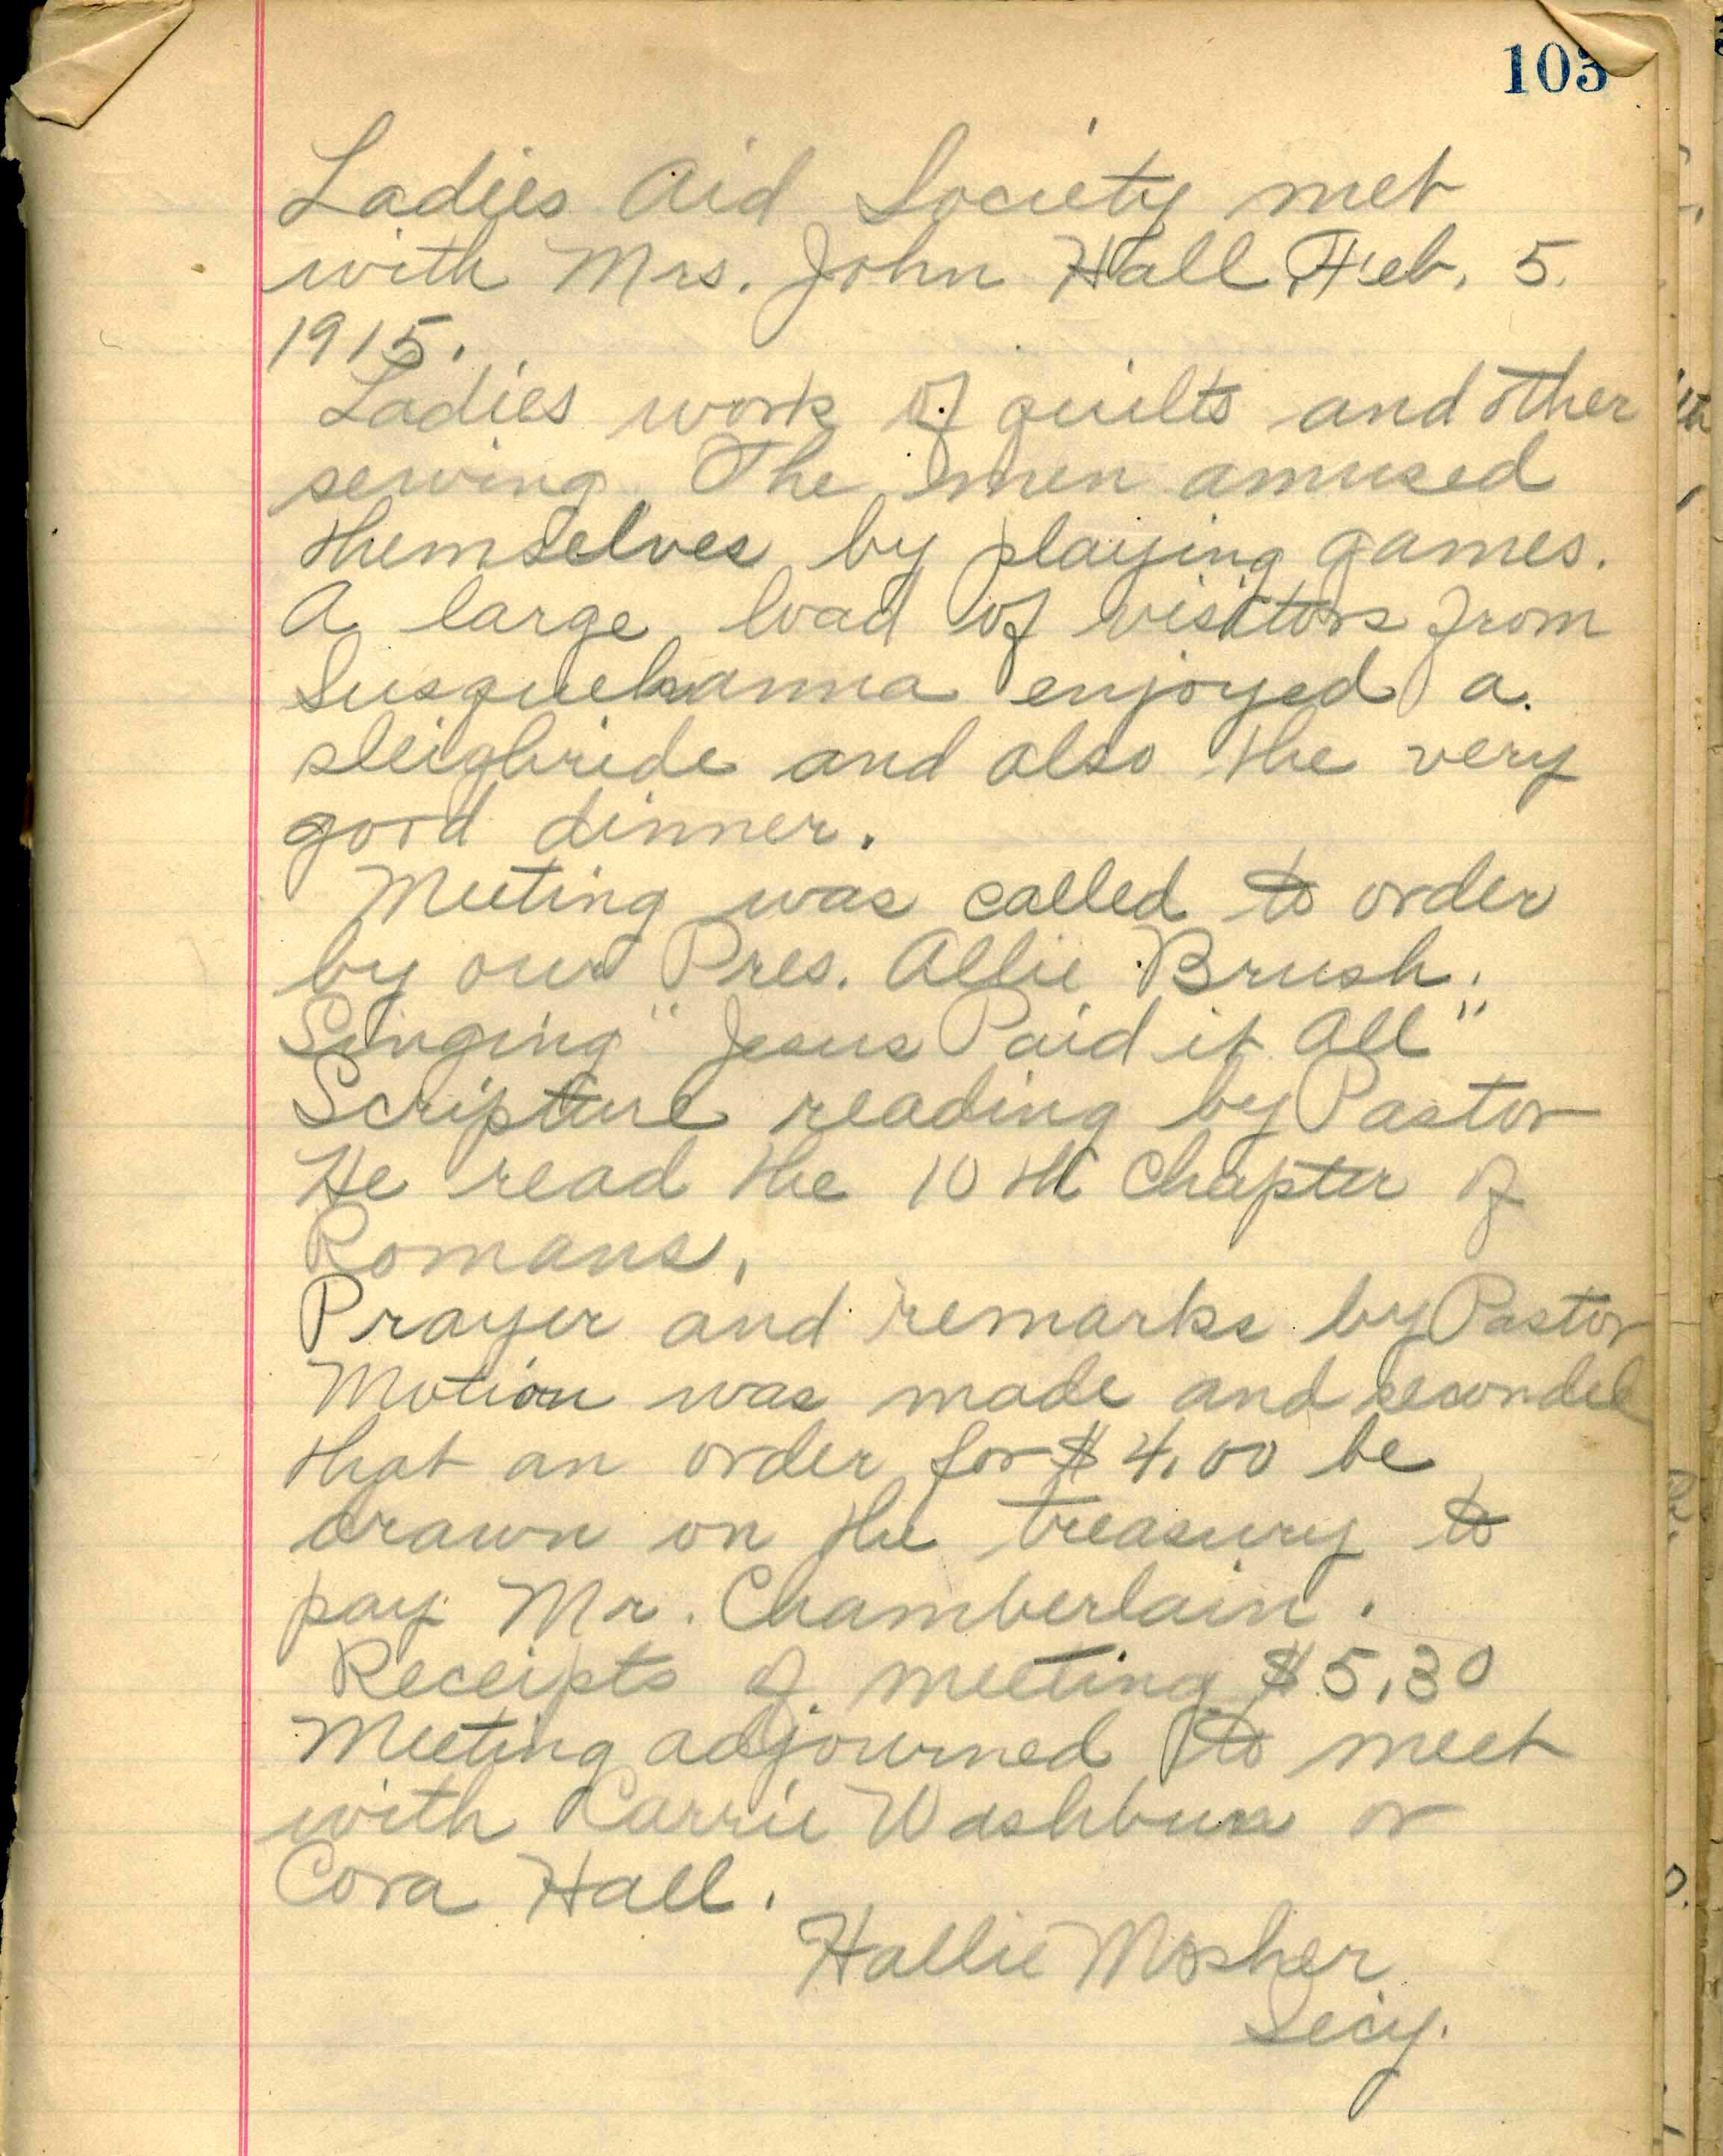 103
Ladies Aid Society met
with Mrs. John Hall Feb. 5.
1915.
Ladies work of quilts and other
sewing. The men amused
themselves by playing games.
A large load of visitors from
Susquehanna enjoyed a
sleighride and also the very
good dinner.
Meeting was called to order
by our Pres. Allie Brush.
Singing "Jesus Paid it All"
Scripture reading by Pastor
He read the 10th Chapter of
Romans.
Prayer and remarks by Pastor
Motion was made and seconded
that an order for $4.00 be
drawn on the treasury to
pay Mr. Chamberlain.
Receipts of meeting $5.30
Meeting adjourned to meet
with Carrie Washburn or
Cora Hall.
Hallie Mosher
Secy.